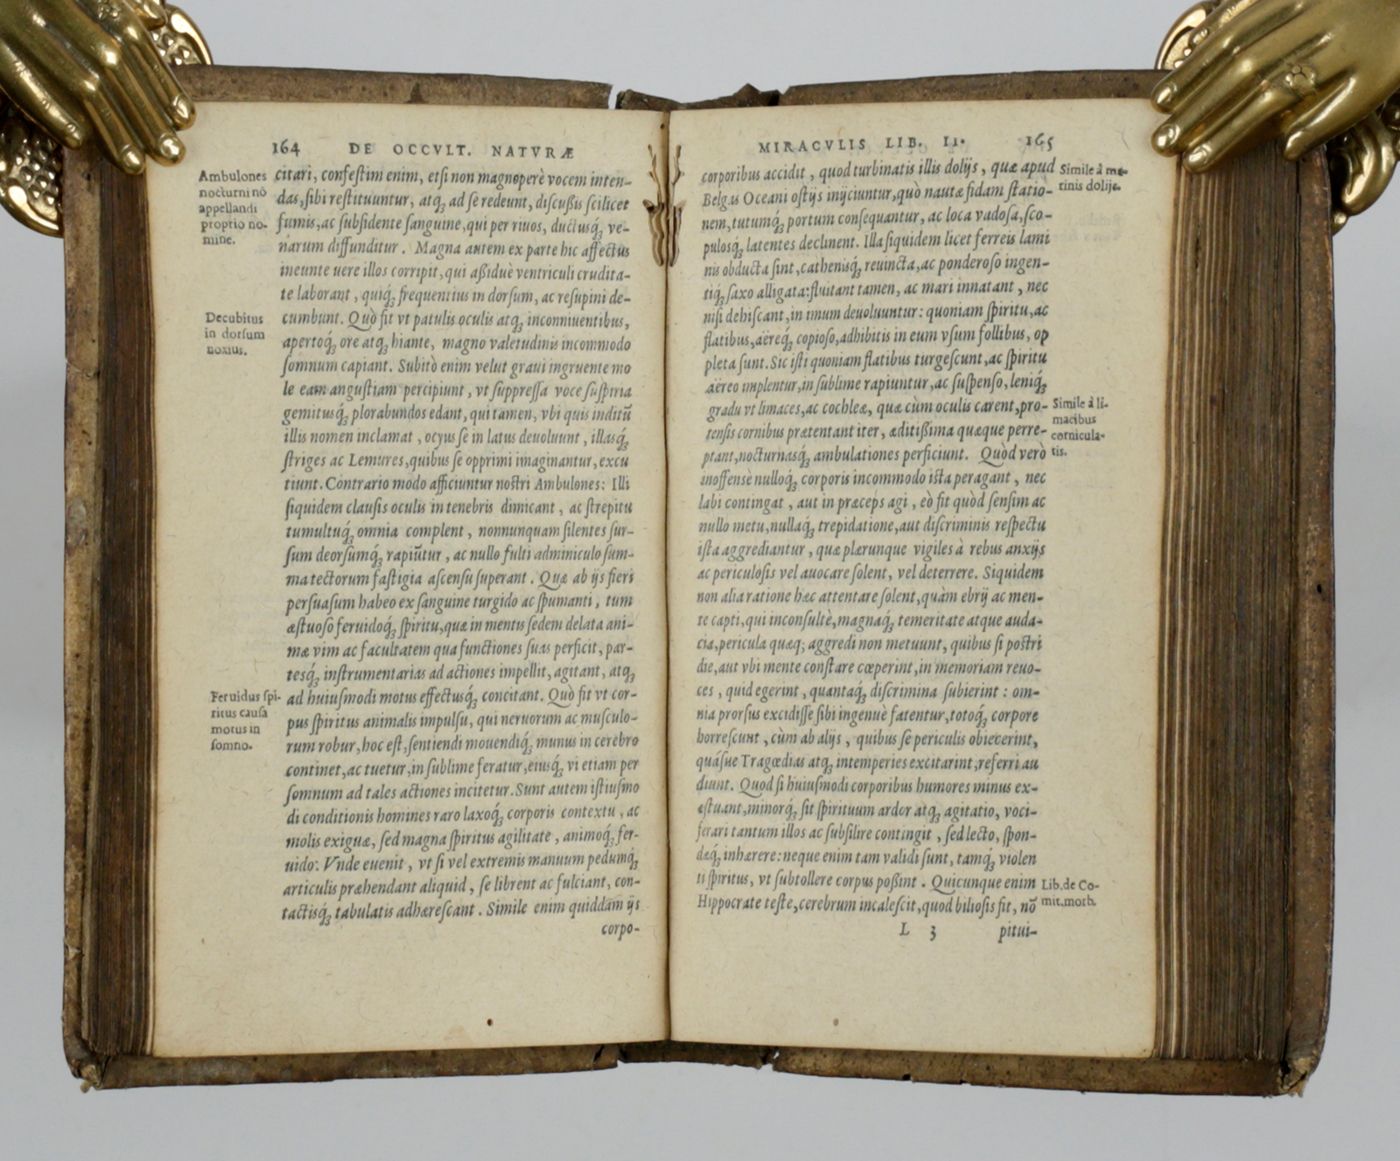 164 DE OCCVLT. NATVRÆ
Ambulones
nocturni nō
appellandi
proprio no-
mine.
citari, confestim enim, etsi non magnoperè vocem inten-
das, sibi restituuntur, atq; ad se redeunt, discußis scilicet
fumis, ac subsidente sanguine, qui per riuos, ductusq; ve-
narum diffunditur. Magna autem ex parte hic affectus
ineunte uere illos corripit, qui aßiduè ventriculi crudita-
te laborant, quiq; frequentius in dorsum, ac resupini de-
Decubitus
in dorsum
noxius.
cumbunt. Quò fit vt patulis oculis atq; inconniuentibus,
apertoq; ore atq; hiante, magno valetudinis incommodo
somnum capiant. Subitò enim velut graui ingruente mo
le eam angustiam percipiunt, vt suppressa voce suspiria
gemitusq; plorabundos edant, qui tamen, vbi quis inditū
illis nomen inclamat, ocyus se in latus deuoluunt, illasq;
striges ac Lemures, quibus se opprimi imaginantur, excu
tiunt. Contrario modo afficiuntur nostri Ambulones: Illi
siquidem clausis oculis in tenebris dimicant, ac strepitu
tumultuq; omnia complent, nonnunquam silentes sur-
sum deorsumq; rapiūtur, ac nullo fulti adminiculo sum-
ma tectorum fastigia ascensu superant. Quæ ab ijs fieri
persuasum habeo ex sanguine turgido ac spumanti, tum
æstuoso feruidoq; spiritu, quæ in mentis sedem delata ani-
mæ vim ac facultatem qua functiones suas perficit, par-
tesq; instrumentarias ad actiones impellit, agitant, atq;
Feruidus spi-
ritus causa
motus in
somno.
ad huiusmodi motus effectusq; concitant. Quò fit vt cor-
pus spiritus animalis impulsu, qui neruorum ac musculo-
rum robur, hoc est, sentiendi mouendiq; munus in cerebro
continet, ac tuetur, in sublime feratur, eiusq; vi etiam per
somnum ad tales actiones incitetur. Sunt autem istiusmo
di conditionis homines raro laxoq; corporis contextu, ac
molis exiguæ, sed magna spiritus agilitate, animoq; fer-
uido: Vnde euenit, vt si vel extremis manuum pedumq;
articulis præhendant aliquid, se librent ac fulciant, con-
tactisq; tabulatis adhærescant. Simile enim quiddam ijs
corpo-
MIRACVLIS LIB. II. 165
corporibus accidit, quod turbinatis illis dolijs, quæ apud
Simile à ma-
rinis dolijs.
Belgas Oceani ostijs inijciuntur, quò nautæ fidam statio-
nem, tutumq; portum consequantur, ac loca vadosa, sco-
pulosq; latentes declinent. Illa siquidem licet ferreis lami
nis obducta sint, cathenisq; reuincta, ac ponderoso ingen-
tiq; saxo alligata: fluitant tamen, ac mari innatant, nec
nisi dehiscant, in imum deuoluuntur: quoniam spiritu, ac
flatibus, aëreq; copioso, adhibitis in eum vsum follibus, op
pleta sunt. Sic isti quoniam flatibus turgescunt, ac spiritu
aëreo implentur, in sublime rapiuntur, ac suspenso, leniq;
gradu vt limaces, ac cochleæ, quæ cùm oculis carent, pro-
Simile à li-
macibus
cornicula-
tis.
tensis cornibus prætentant iter, æditißima quæque perre-
ptant, nocturnasq; ambulationes perficiunt. Quòd verò
inoffensè nulloq; corporis incommodo ista peragant, nec
labi contingat, aut in præceps agi, eò fit quòd sensim ac
nullo metu, nullaq; trepidatione, aut discriminis respectu
ista aggrediantur, quæ plærunque vigiles à rebus anxijs
ac periculosis vel auocare solent, vel deterrere. Siquidem
non alia ratione hæc attentare solent, quàm ebrij ac men-
te capti, qui inconsultè, magnaq; temeritate atque auda-
cia, pericula quæq; aggredi non metuunt, quibus si postri
die, aut vbi mente constare cœperint, in memoriam reuo-
ces, quid egerint, quantaq; discrimina subierint: om-
nia prorsus excidisse sibi ingenuè fatentur, totoq; corpore
horrescunt, cùm ab alijs, quibus se periculis obiecerint,
quásue Tragœdias atq; intemperies excitarint, referri au
diunt. Quod si huiusmodi corporibus humores minus ex-
æstuant, minorq; sit spirituum ardor atq; agitatio, voci-
ferari tantum illos ac subsilire contingit, sed lecto, spon-
dæq; inhærere: neque enim tam validi sunt, tamq; violen
ti spiritus, vt subtollere corpus poßint. Quicunque enim
Lib. de Co-
mit. morb.
Hippocrate teste, cerebrum incalescit, quod biliosis fit, nō
L 3 pitui-